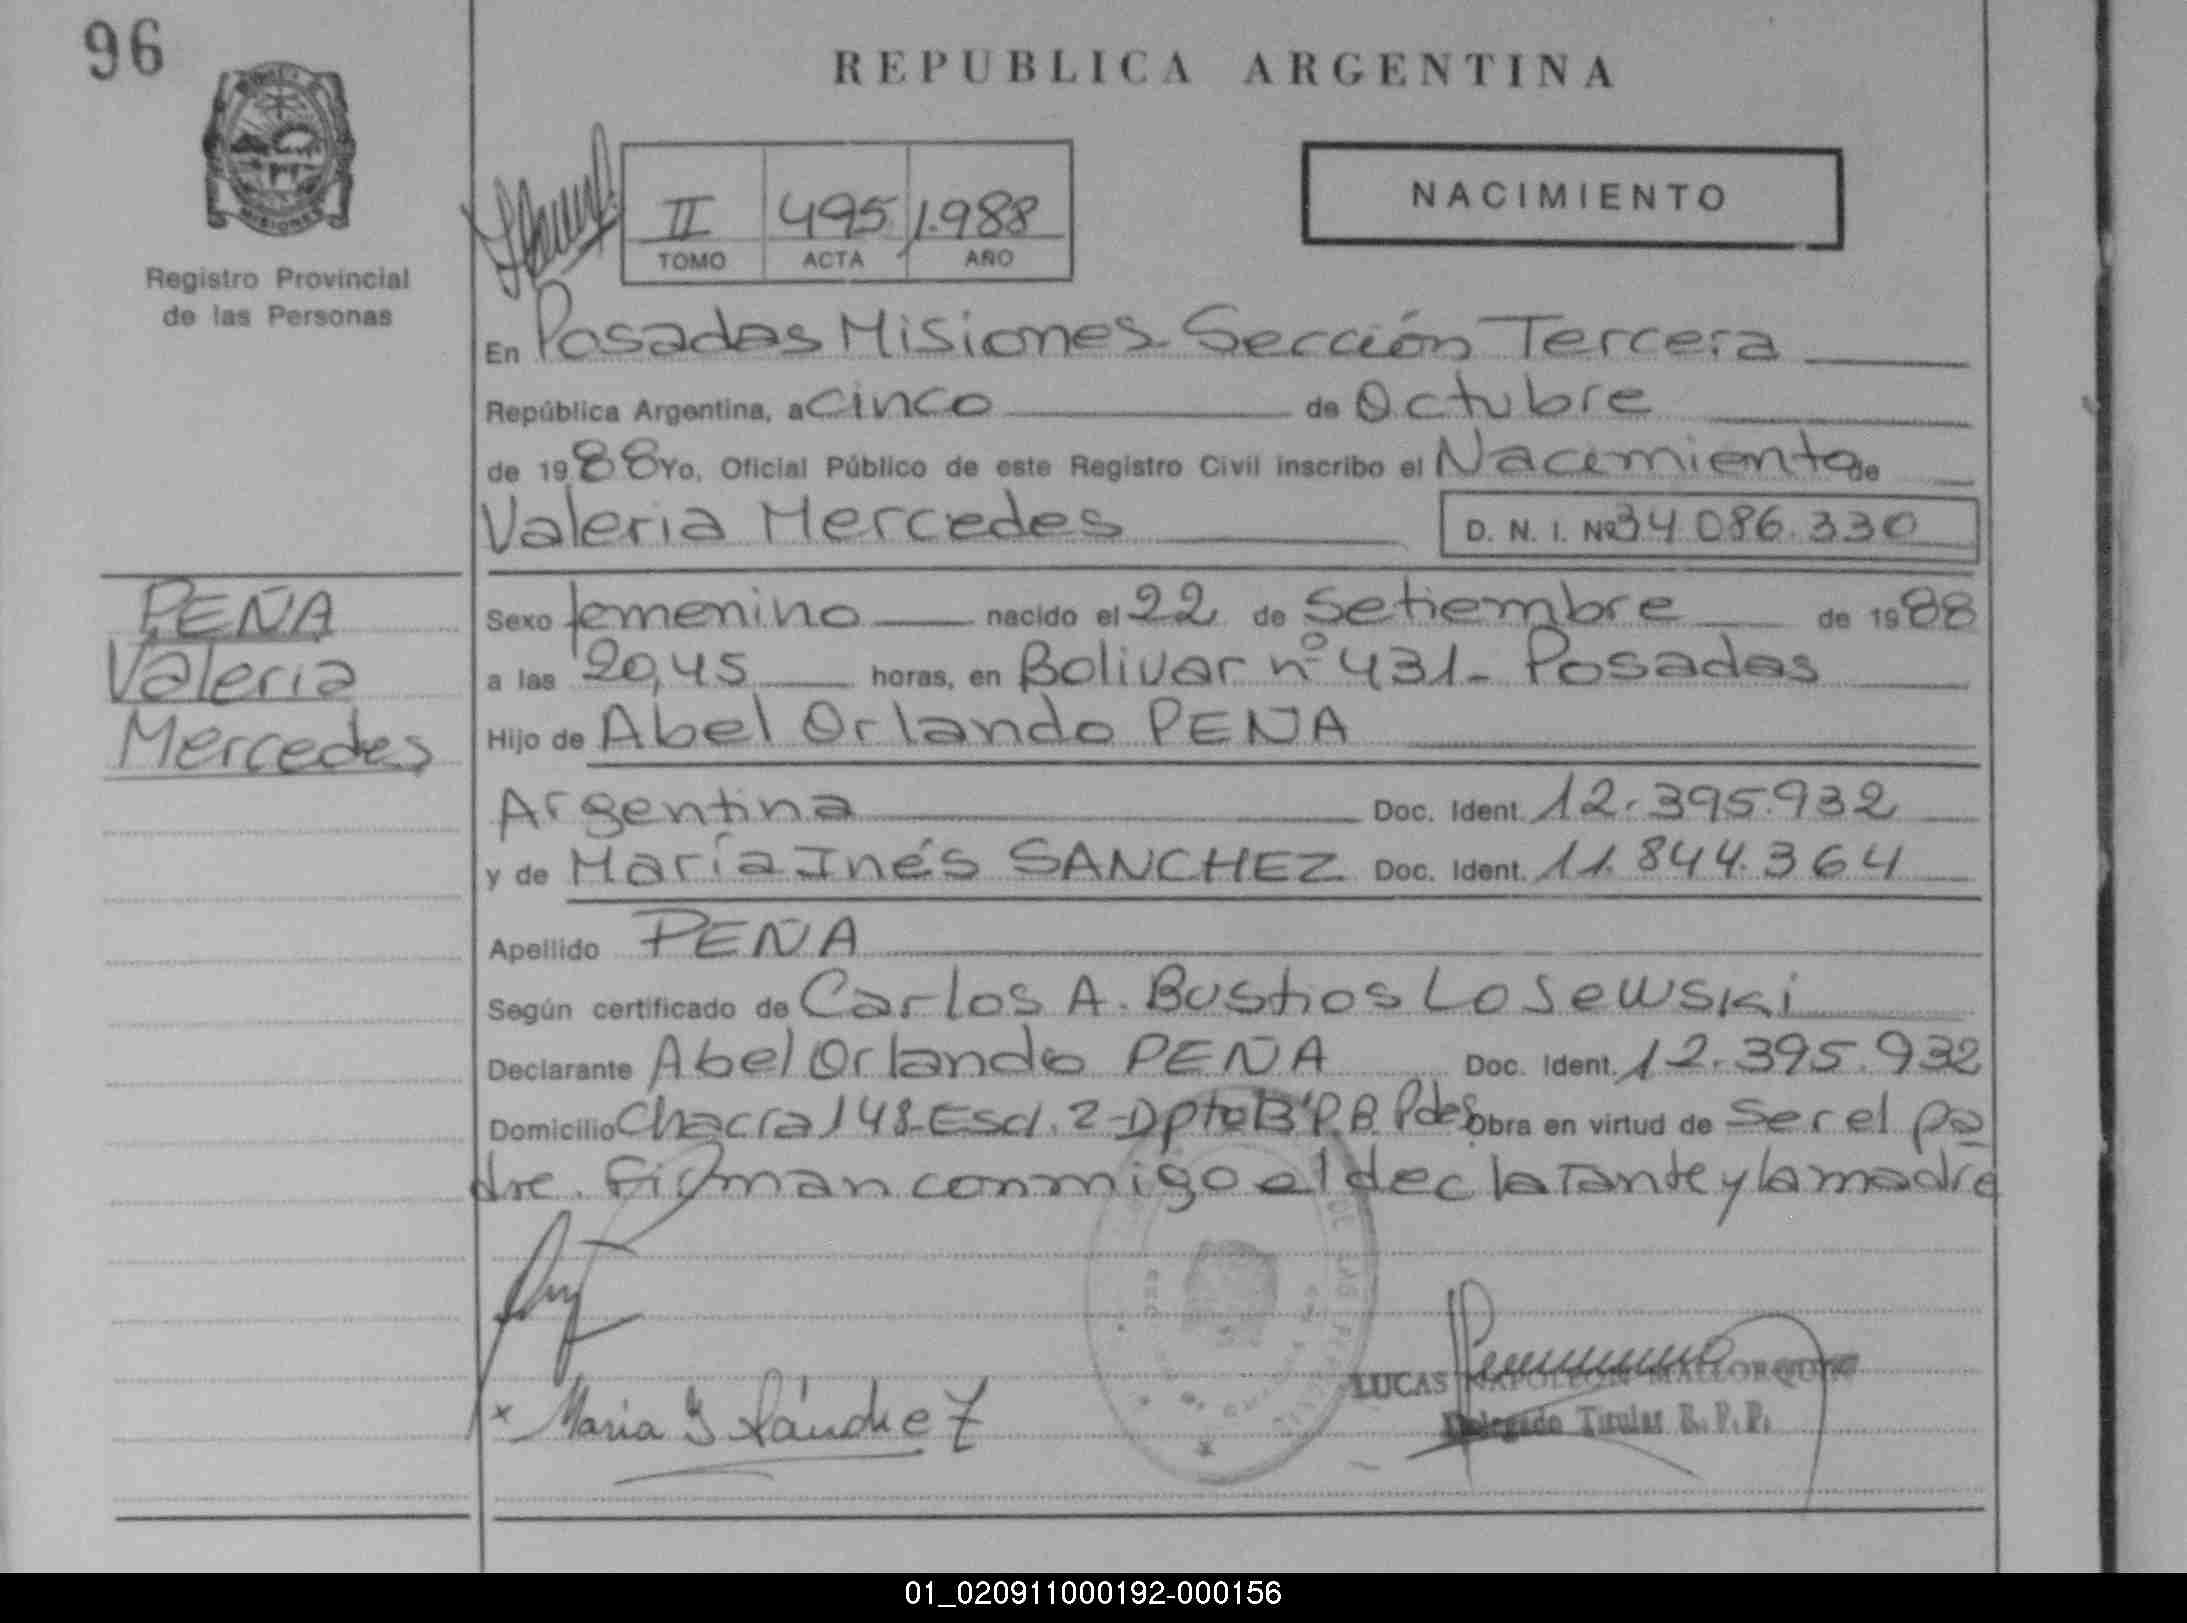 96
REPUBLICA ARGENTINA
MISIONES
Registro Provincial
de las Personas
II 495 1.988
TOMO ACTA AÑO
NACIMIENTO
En Posadas Misiones Sección Tercera
República Argentina, a cinco de Octubre
de 1988 Yo, Oficial Público de este Registro Civil inscribo el Nacemiento de
Valeria Mercedes D. N. I. Nº 34 086.330
PEÑA
Valeria
Mercedes
Sexo femenino nacido el 22 de Setiembre de 1988
a las 20,45 horas, en Bolivar nº 431- Posadas
Hijo de Abel Orlando PEÑA
Argentina Doc. Ident. 12.395.932
y de María Inés SANCHEZ Doc. Ident. 11.844.364
Apellido PEÑA
Según certificado de Carlos A. Bustios Losewski
Declarante Abel Orlando PEÑA Doc. Ident. 12.395.932
Domicilio Chacra 148-Escl. 2-Dpto B P.B. Pdes Obra en virtud de ser el pa
dre. Firman conmigo el declarante y la madre
x Maria I Sánchez
DE LAS
LUCAS NAPOLEON MALLORQUIN
Delegado Titular R. P. P.
01_020911000192-000156